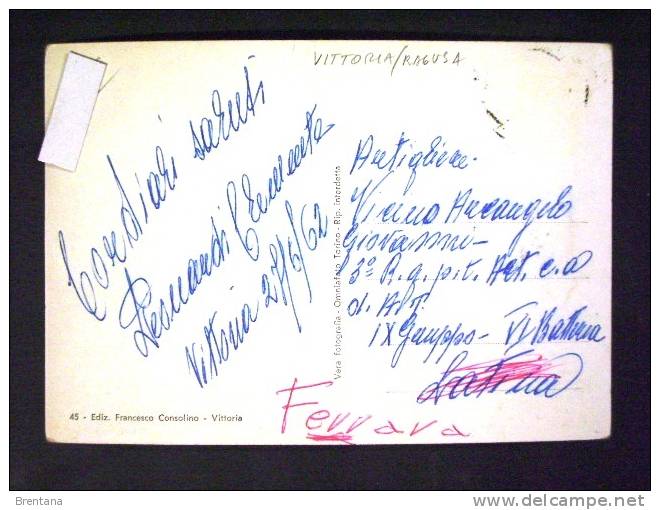 VITTORIA/RAGUSA
Cordiali saluti
Leonardi Clemente
Vittoria 27/6/62
Vera fotografia - Omniafoto Torino - Rip. interdetta
Artigliere
Arcangelo
Giovanni
3º R. Art. c.a
d. Arr
IX Gruppo - VI Batteria
Latina
Ferrara
45 - Ediz. Francesco Consolino - Vittoria
Brentana
delcampe.net